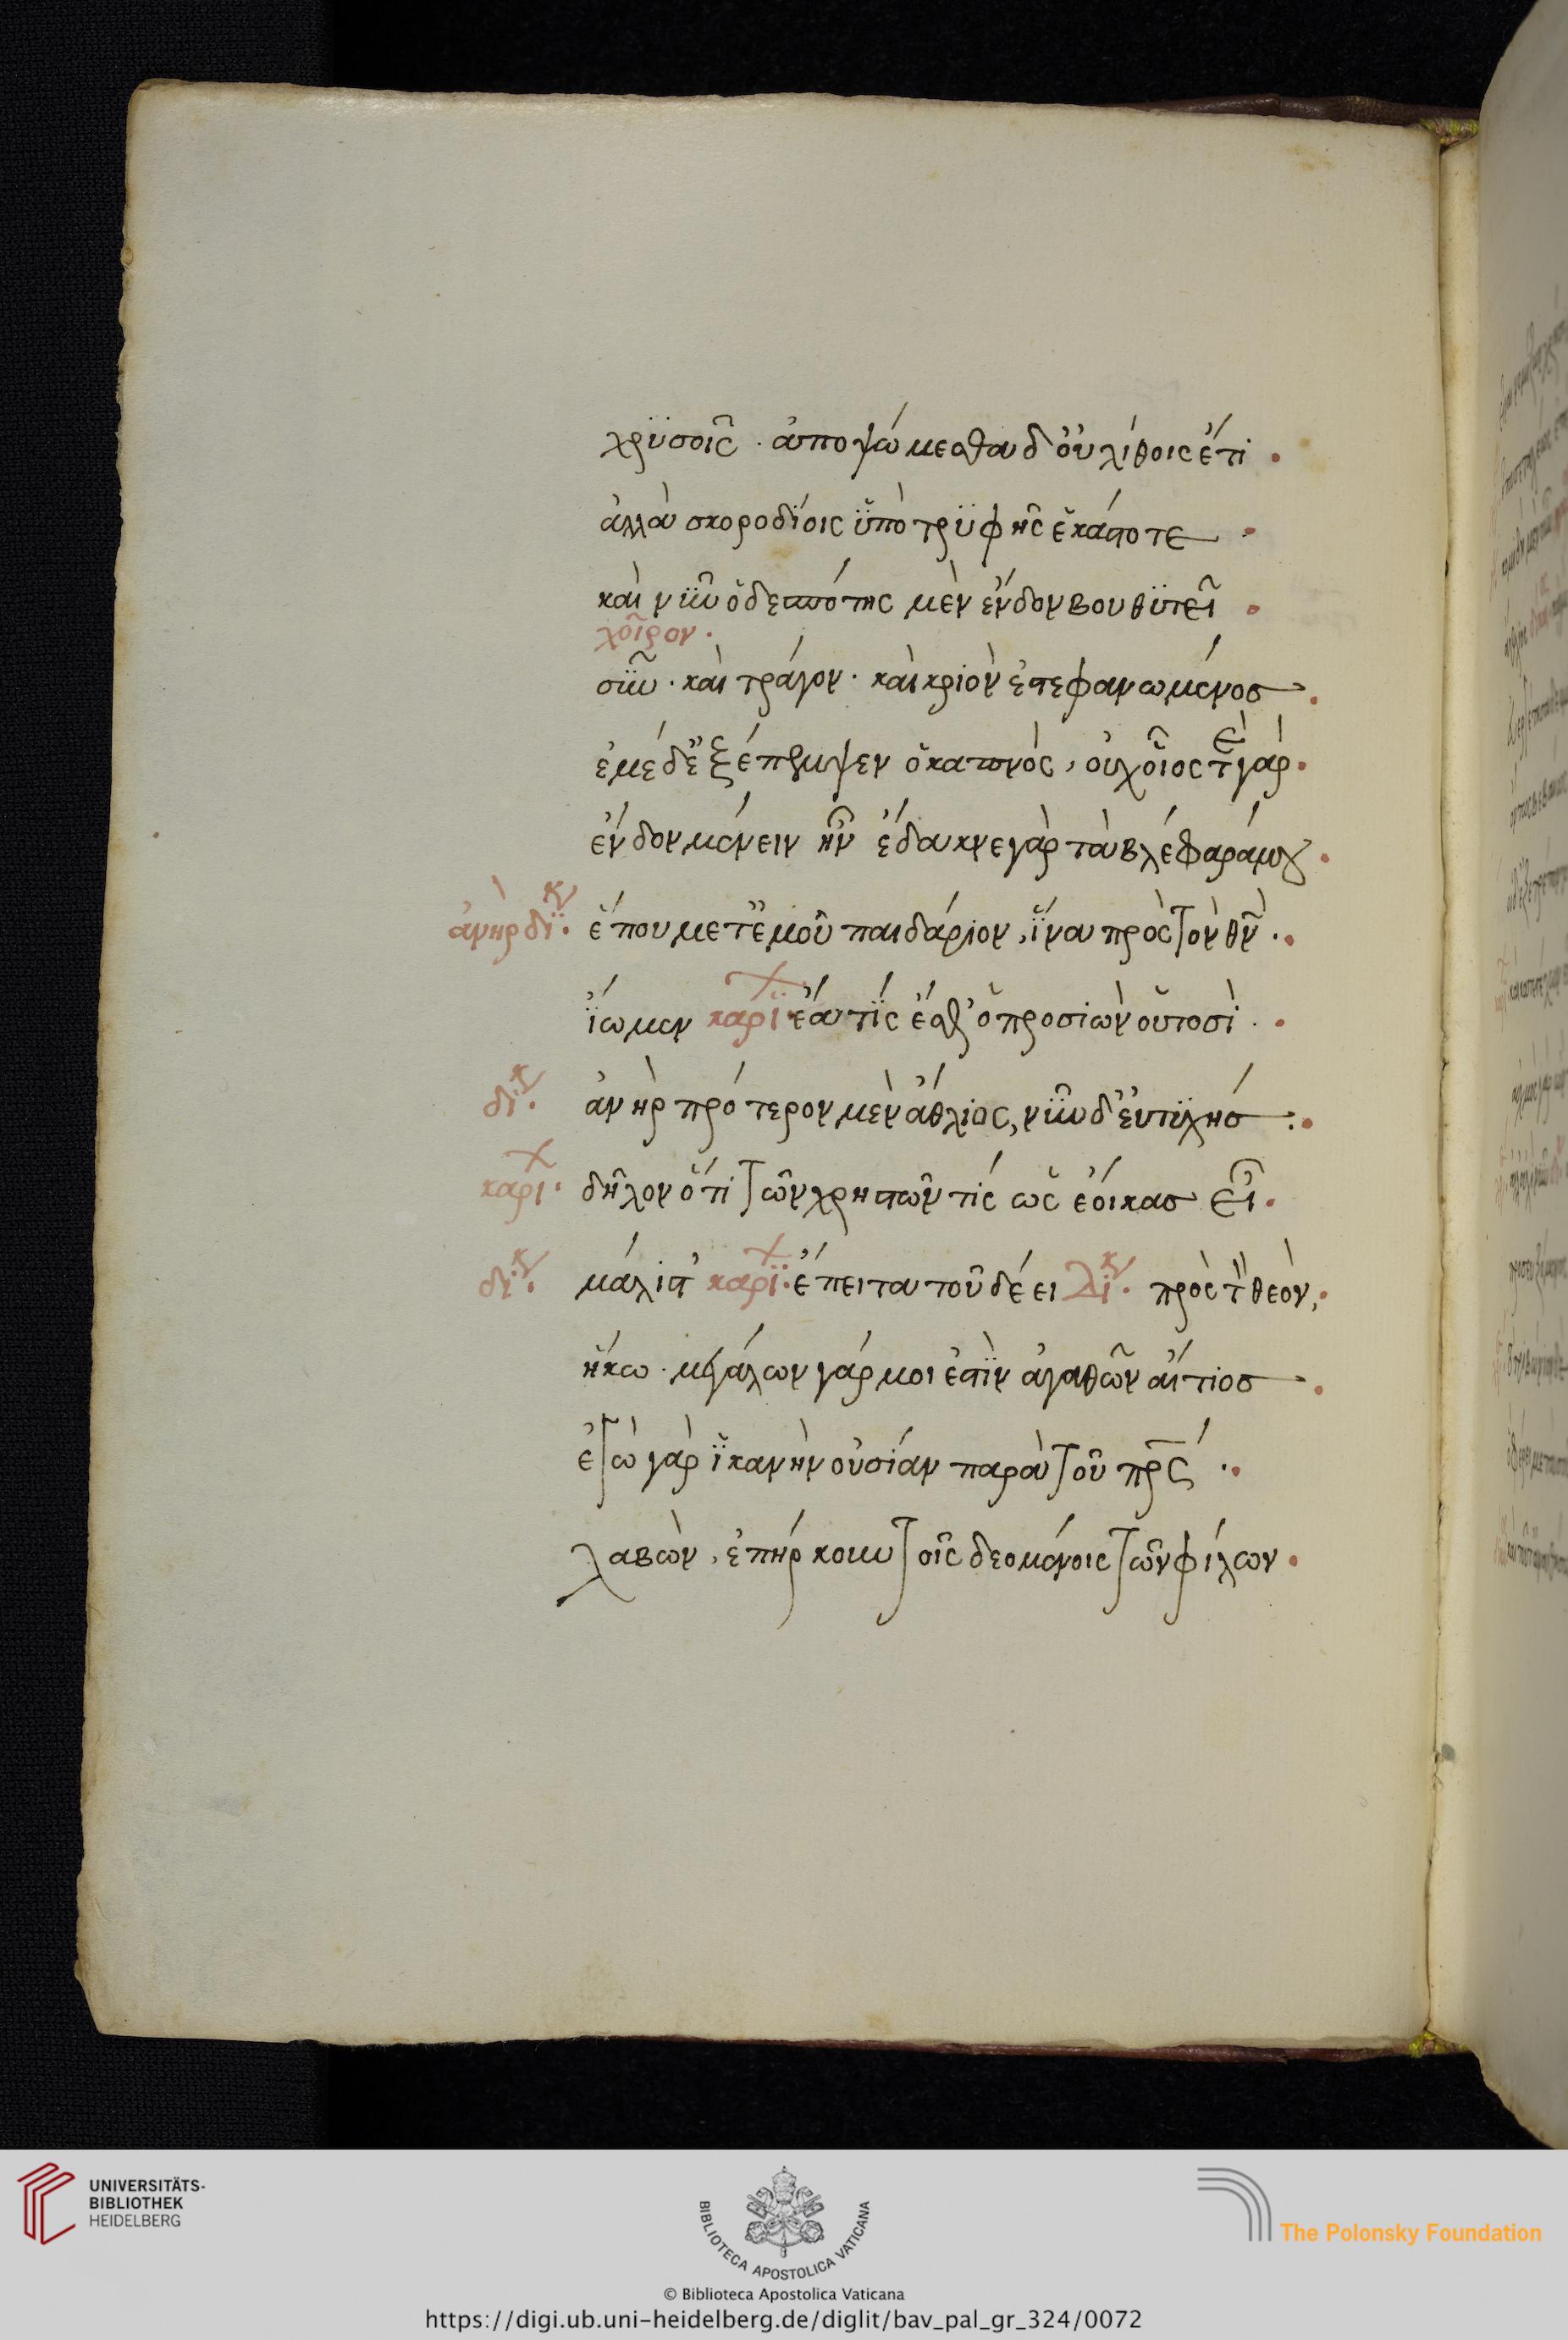 χρϋσοῖς · ἀποψώμεσθα δ' οὐ λίθοις ἔτι ·
ἀλλὰ σκοροδίοις ὑπὸ τρϋφῆς ἑκάστοτε ·
καὶ νῦν ὁ δεσπότης μὲν ἔνδον βουθϋτεῖ ·
χοῖρον ·
σῦν · καὶ τράγον · καὶ κριὸν ἐστεφανωμένος ·
ἐμὲ δ' ἐξέπεμψεν ὁ καπνός, οὐχ οἷός τε γὰρ ·
ἔνδον μένειν ἦν ἔδακνε γὰρ τὰ βλέφαρά μου ·
ἀνὴρ δίκ · ἕπου μετ' ἐμοῦ παιδάριον, ἵνα πρὸς τὸν θν ·
ἴωμεν καρί · ἔα τίς ἔσθ' ὁ προσιὼν οὑτοσί ·
δίκ · ἀνὴρ πρότερον μὲν ἄθλιος, νῦν δ' εὐτϋχής :
καρι · δῆλον ὅτι τῶν χρηστῶν τίς ὡς ἔοικας εἶ ·
δίκ · μάλιστ' καρί · ἔπειτα τοῦ δέει δίκ · πρὸς τὸν θεόν, ·
ἥκω · μεγάλων γάρ μοι ἐστὶν ἀγαθῶν αἴτιος ·
ἐγὼ γὰρ ἱκανὴν οὐσίαν παρὰ τοῦ πρς ·
λαβὼν, ἐπήρκουν τοῖς δεομένοις τῶν φίλων ·
UNIVERSITÄTS-
BIBLIOTHEK
HEIDELBERG
BIBLIOTECA APOSTOLICA VATICANA
The Polonsky Foundation
© Biblioteca Apostolica Vaticana
https://digi.ub.uni-heidelberg.de/diglit/bav_pal_gr_324/0072